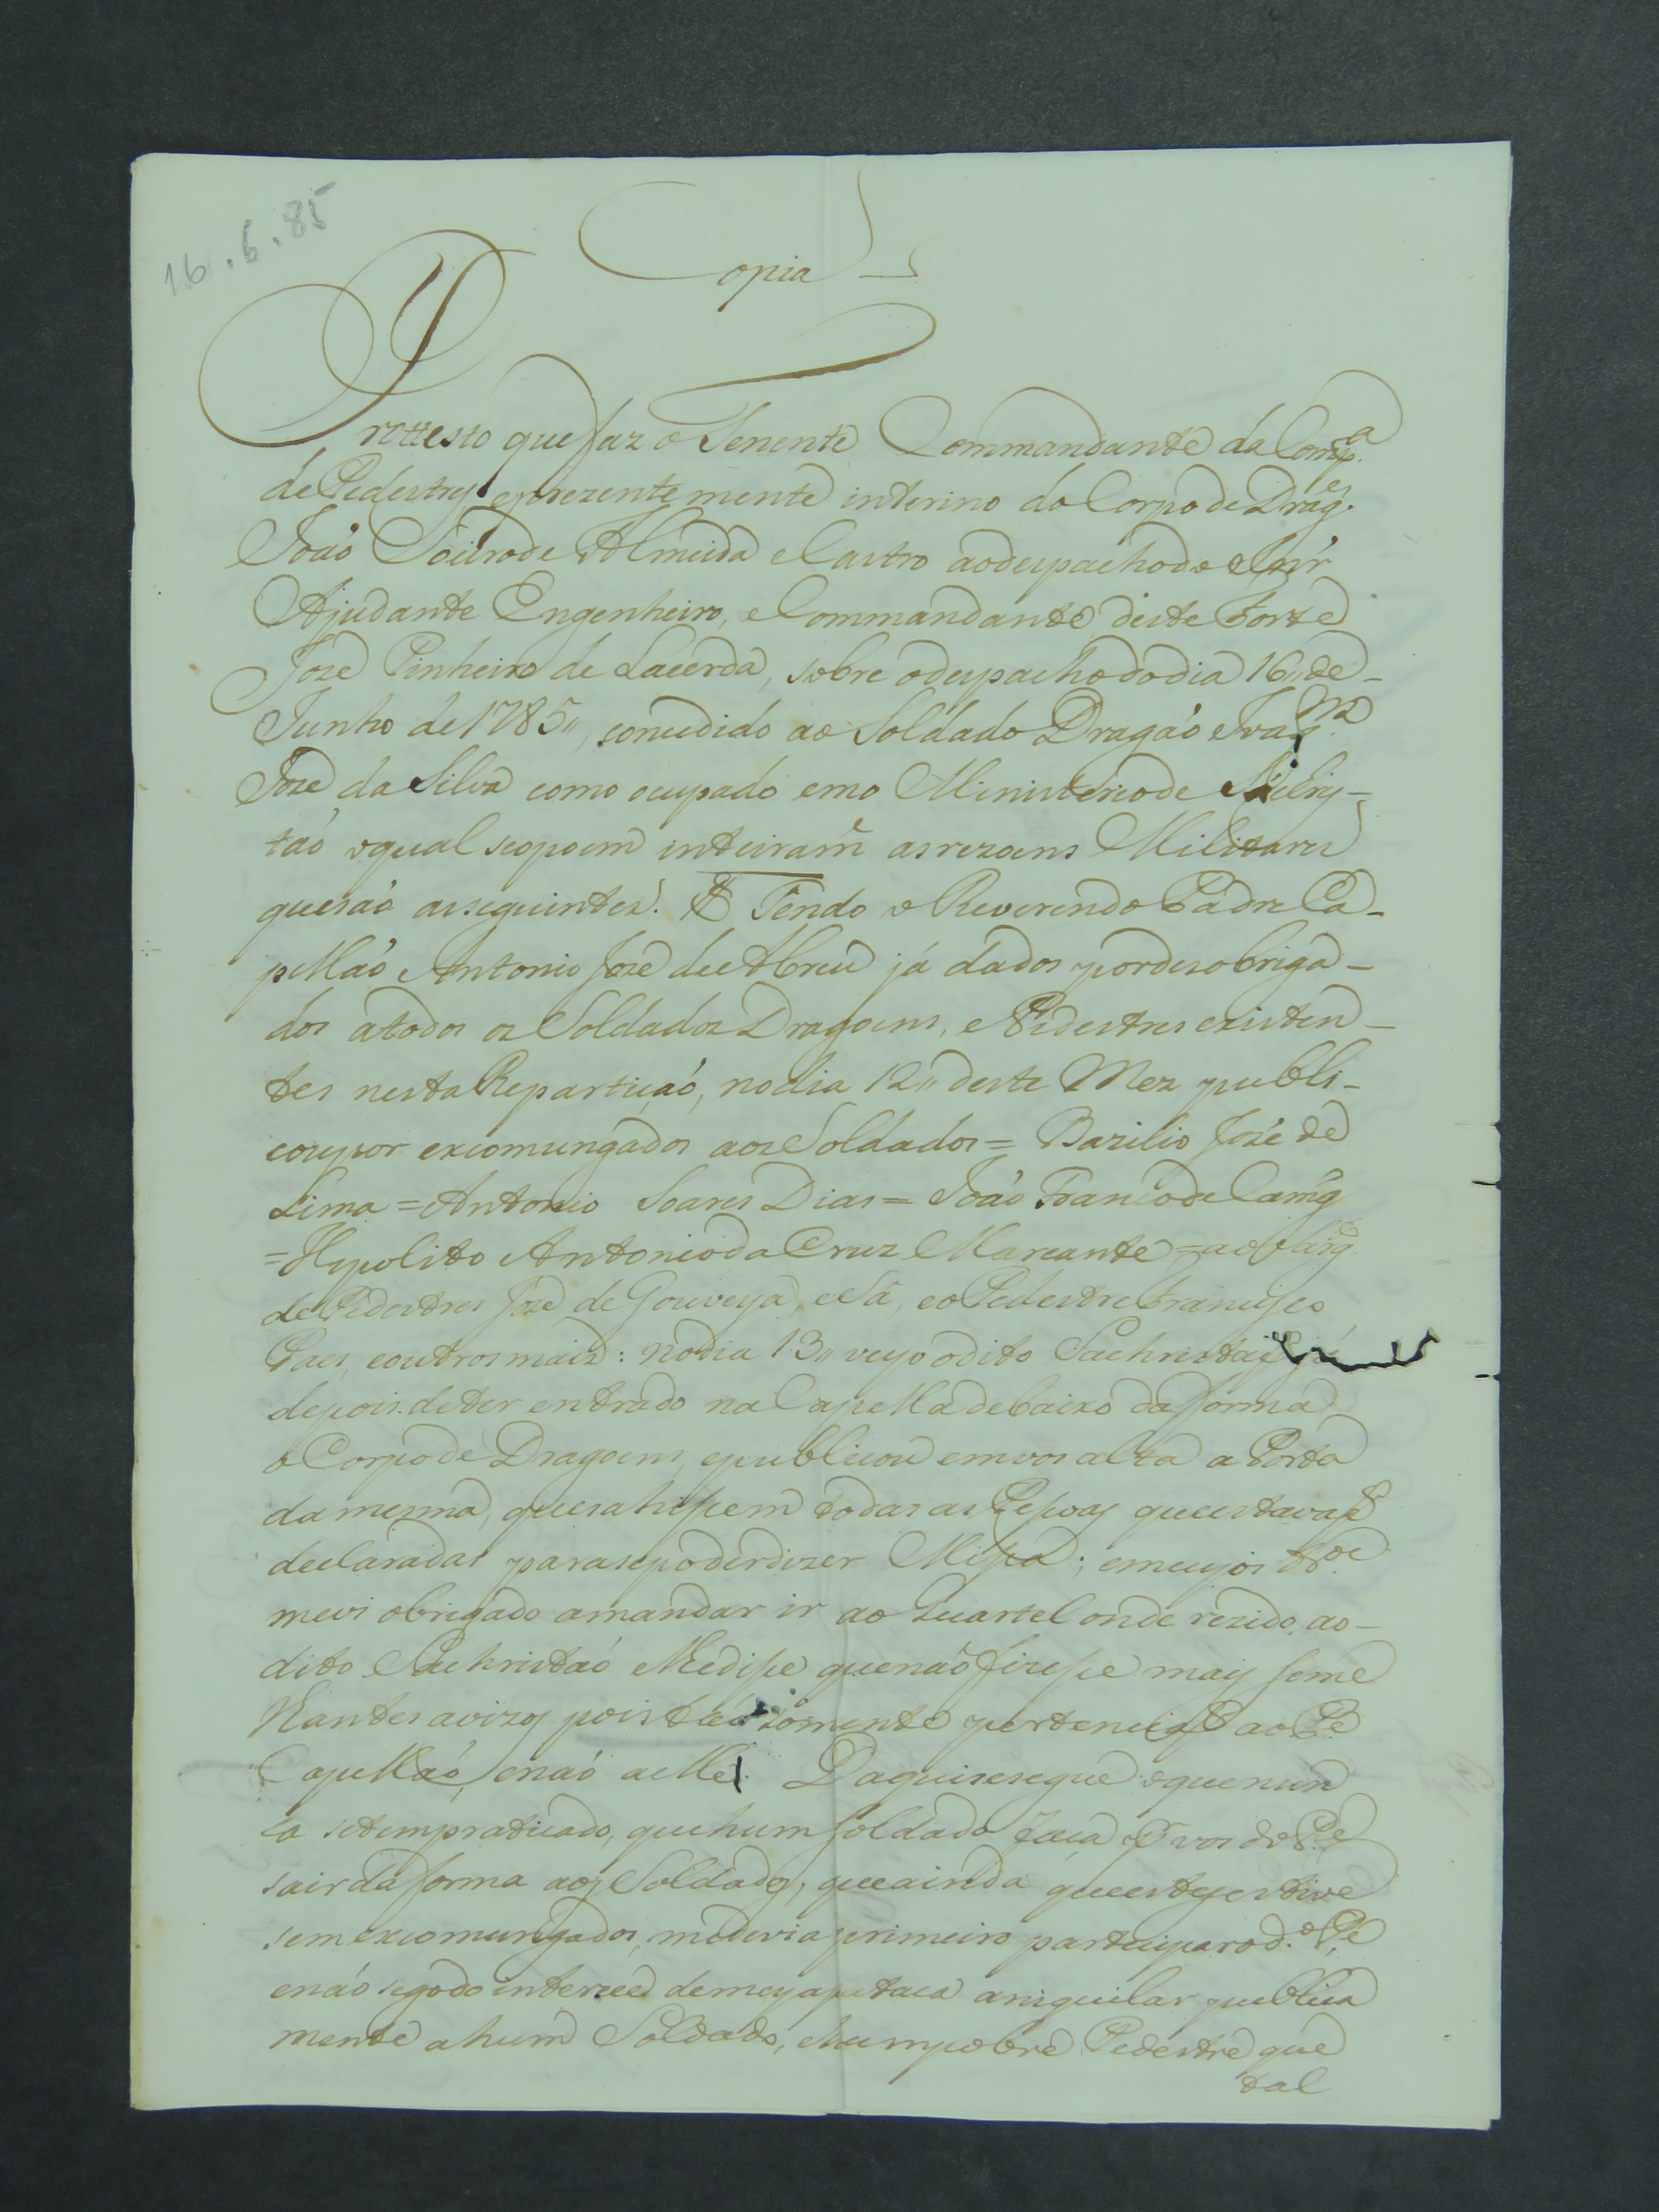 16.6.85
Copia
Prottesto que faz o Tenente Commandante da Comp.ª
de Pedestres, eprezentemente interino do Corpo de Drag.es
João Soeiro de Almeida e Castro aodespacho do Snr̃
Ajudante Engenheiro, e Commandante deste Forte
Joze Pinheiro de Lacerda, sobre odespacho do dia 16,, de
Junho de 1785,, concedido ao Soldado Dragaõ
Joze da Silva como ocupado em o Ministerio de Sachris-
taõ oqual seopoem inteiram.e as rezoens Militares
quesaõ asseguintes. Tendo o Reverendo Padre Ca-
pellaõ Antonio Joze de Abreu já dados pordezobriga-
dos atodos os Soldados Dragoens, e Pedestres existen-
tes nesta Repartiçaõ, nodia 12,, deste Mez publi-
coupor excomungados aos Soldados = Bazilio Joze de
Lima = Antonio Soares Dias = Joaõ Franco de Camg̃
= Hypolito Antonio da Cruz Marcante = ao Sarg.to
de Pedestres Joze de Gouveya, e Sá, eo Pedestre Francisco
Paes, eoutros mais: nodia 13,, veyo odito Sachristaõ já
depois deter entrado na Capella debaixo da forma
o Corpo de Dragoens, epublicou emvos alta a Porta
damesma, quesahissem todas as Pessoas queestavaõ
declaradas parasepoderdizer Missa; emcujos
mevi obrigado amandar ir ao Quartel onde rezido, ao
dito Sachristaõ elledisse quenaõ fizesse mais seme
lhantes avizos pois somente pertencia ao P.e
Capellaõ, enaõ aelle. Daquisesegue oquenun
ca setempraticado, quehum Soldado faça vos do P.e
sairda forma aos Soldados, queainda queestesestive
semexcomungados, medevia primeiro participar o d.o P.e
enaõ interece demeyapataca aniquilar publica
mente ahum Soldado, ehumpobre Pedestre que
tal